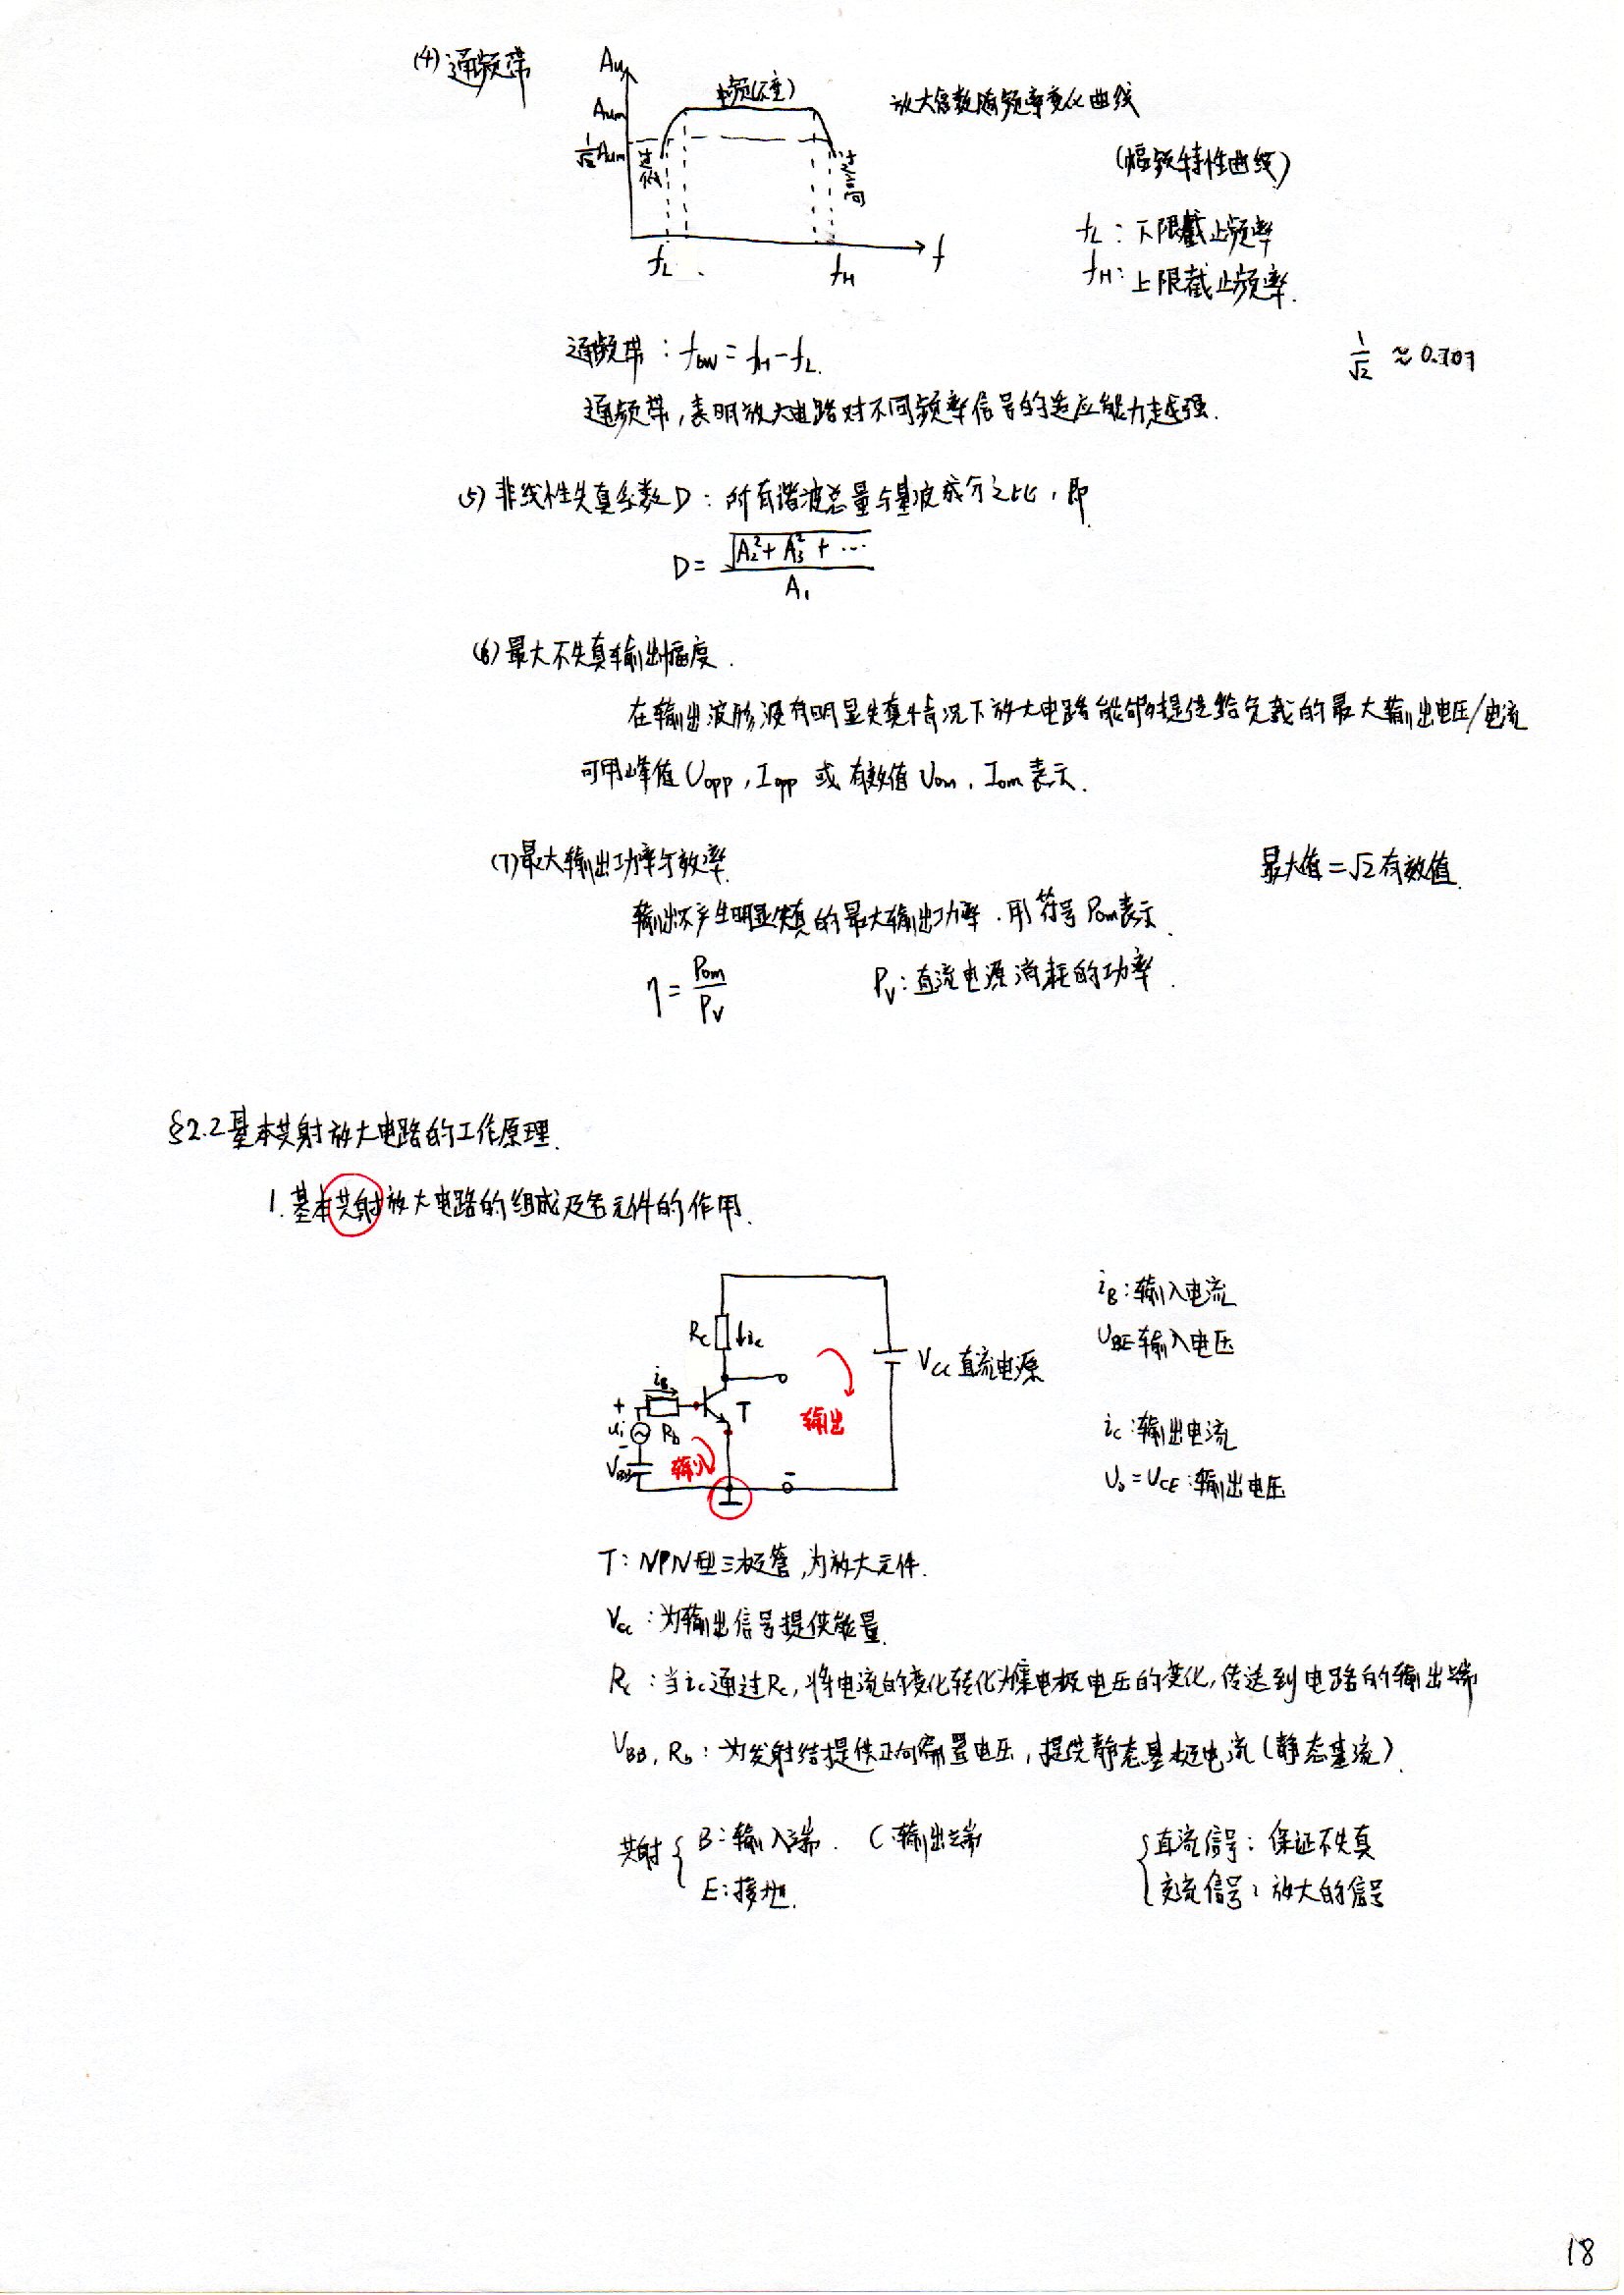 (4) 通频带
Au
Aum
1/√2 Aum
中频(不变)
过低
过高
fL
fH
f
放大倍数随频率变化曲线
(幅频特性曲线)
fL：下限截止频率
fH：上限截止频率.
通频带：fbw = fH - fL.
1/√2 ≈ 0.707
通频带，表明放大电路对不同频率信号的适应能力越强.
(5) 非线性失真系数D：所有谐波总量与基波成分之比，即
D = √(A₂² + A₃² + ⋯) / A₁
(6) 最大不失真输出幅度.
在输出波形没有明显失真情况下放大电路能够提供给负载的最大输出电压/电流
可用峰值Uopp，Iopp 或 有效值 Uom，Iom表示.
(7) 最大输出功率与效率.
最大值 = √2 有效值.
输出不产生明显失真的最大输出功率.用符号Pom表示.
η = Pom / PV
PV：直流电源消耗的功率.
§2.2 基本共射放大电路的工作原理.
1. 基本共射放大电路的组成及各元件的作用.
Rc ↓ic
VCC 直流电源
iB
+
ui
-
Rb
T
VBB
输入
输出
-
iB：输入电流
UBE 输入电压
iC：输出电流
Uo = UCE：输出电压
T：NPN型三极管，为放大元件.
Vcc：为输出信号提供能量.
Rc：当ic通过Rc，将电流的变化转化为集电极电压的变化，传送到电路的输出端
VBB，Rb：为发射结提供正向偏置电压，提供静态基极电流(静态基流).
共射 { B：输入端. C：输出端
E：接地.
{ 直流信号：保证不失真
交流信号：放大的信号
18